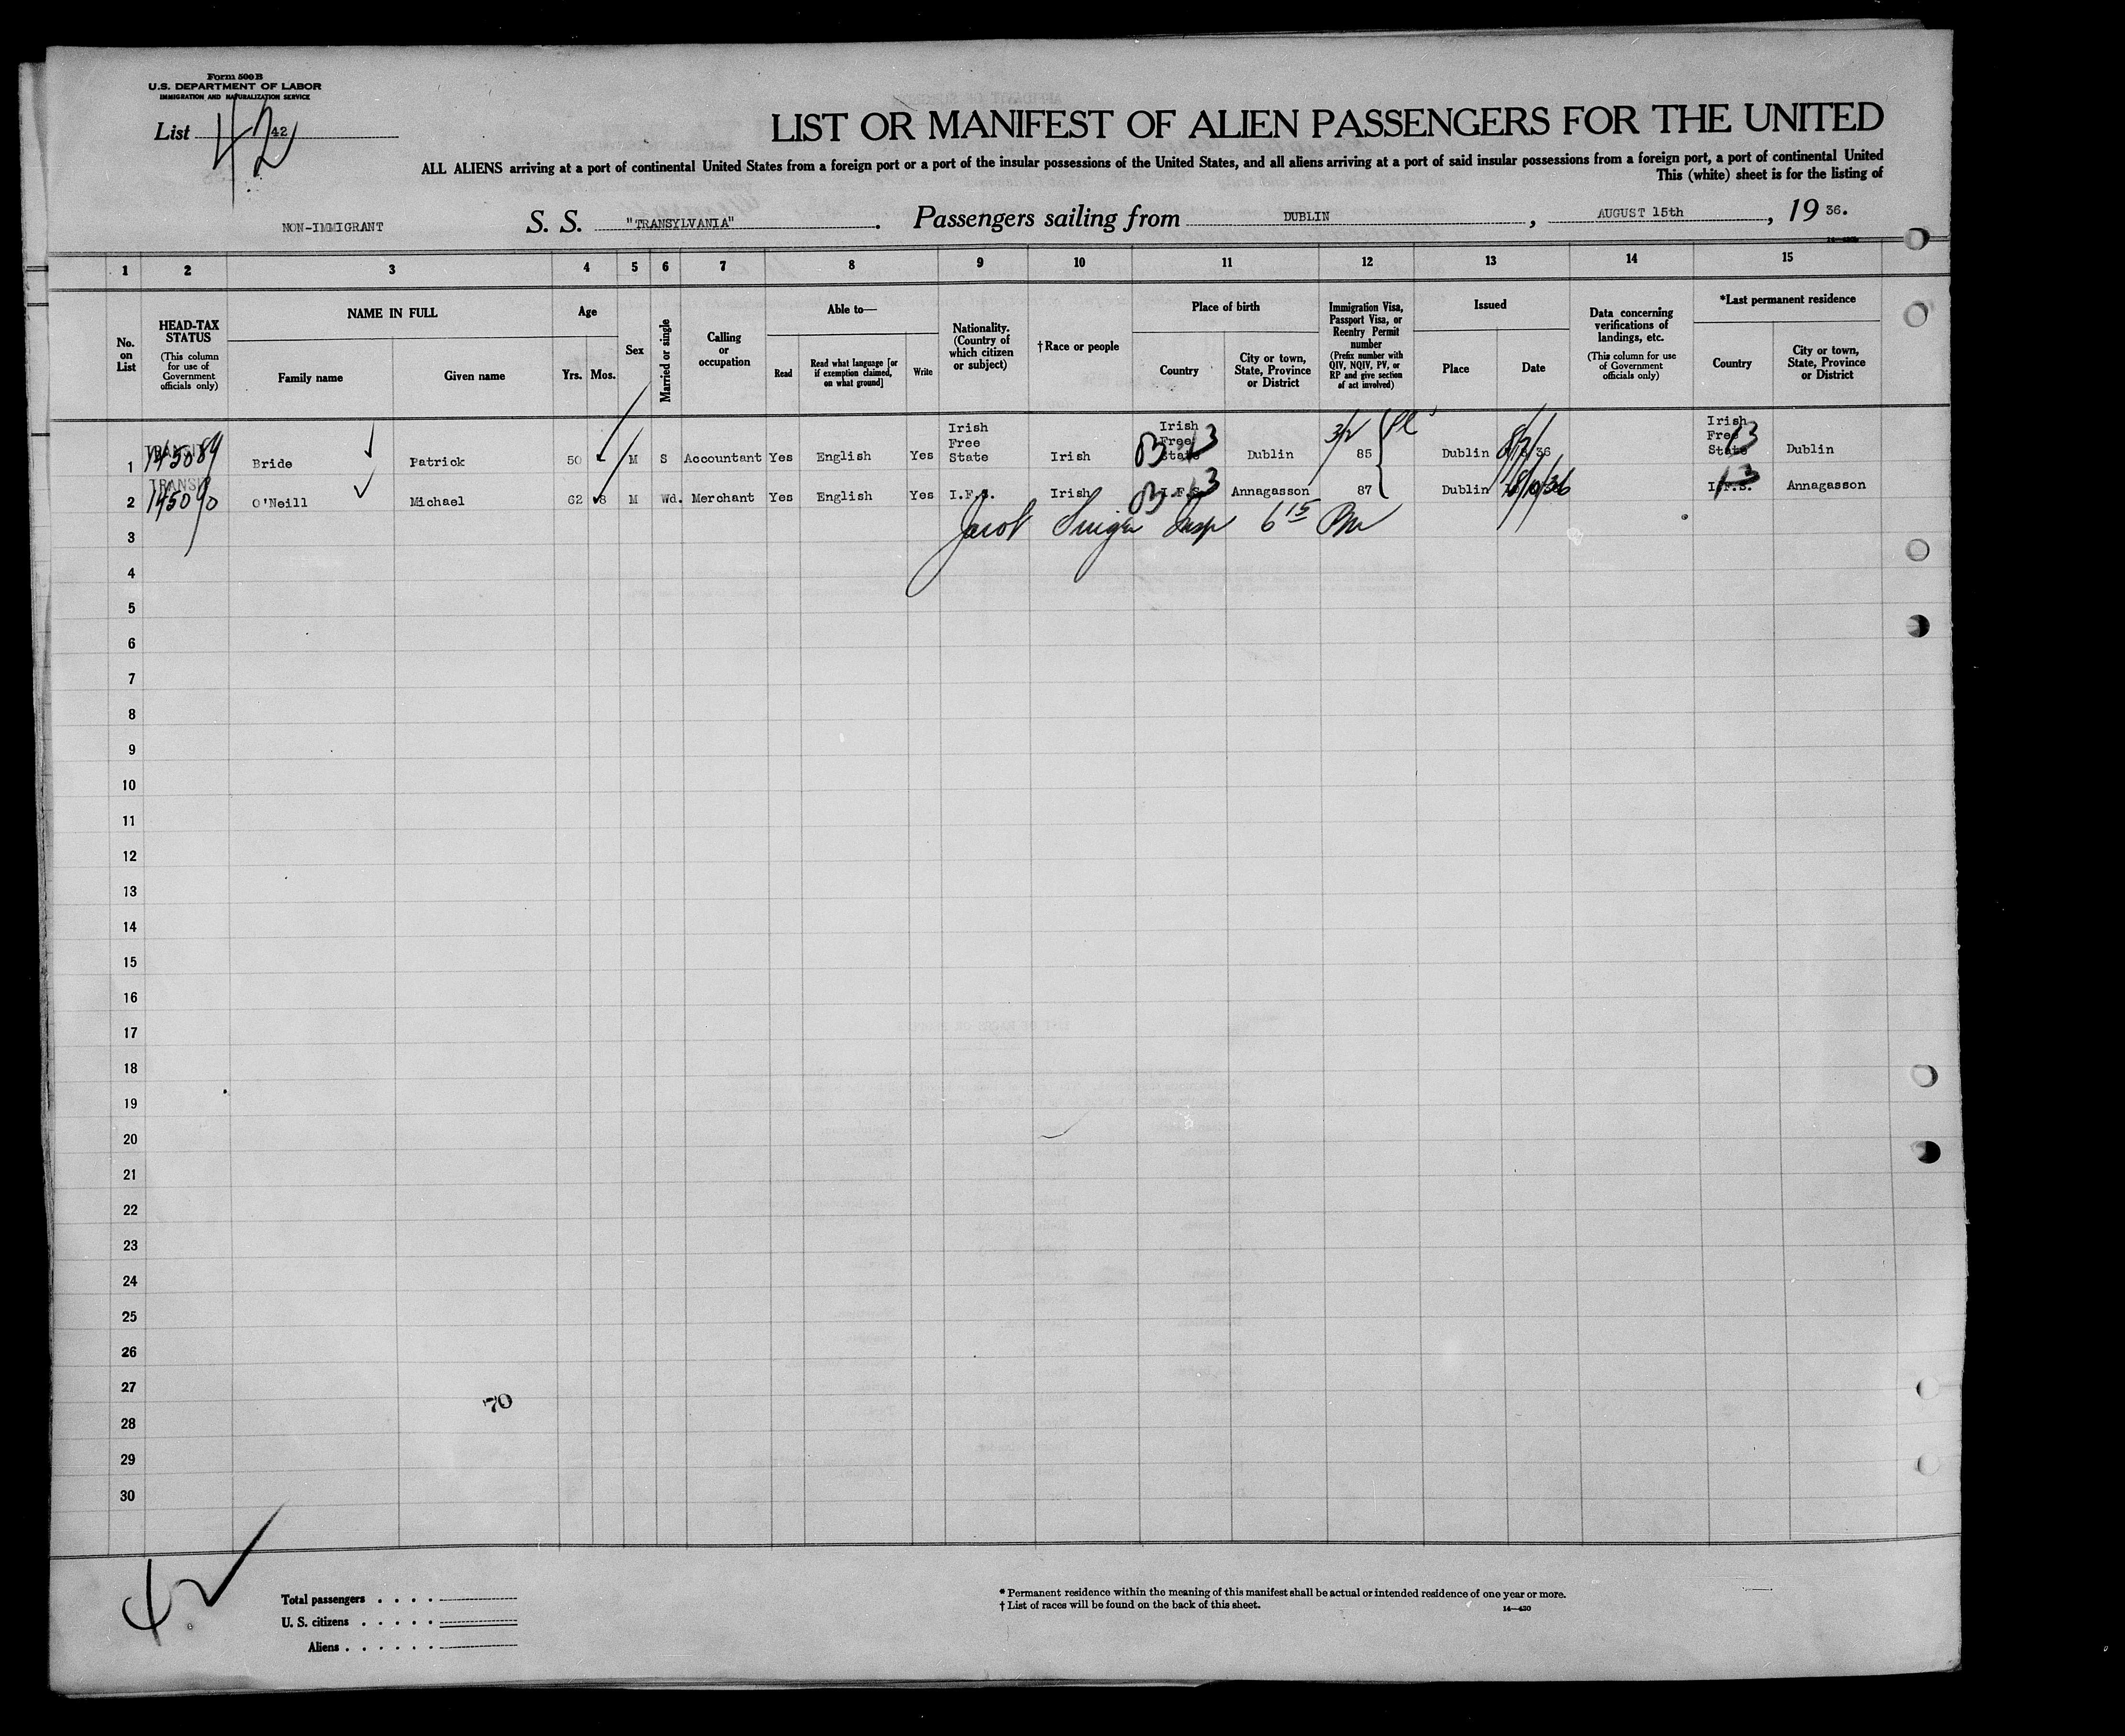 Form 500 B
U.S. DEPARTMENT OF LABOR
IMMIGRATION AND NATURALIZATION SERVICE
List 42
42
LIST OR MANIFEST OF ALIEN PASSENGERS FOR THE UNITED
ALL ALIENS arriving at a port of continental United States from a foreign port or a port of the insular possessions of the United States, and all aliens arriving at a port of said insular possessions from a foreign port, a port of continental United
This (white) sheet is for the listing of
NON-IMMIGRANT S. S. "TRANSYLVANIA". Passengers sailing from DUBLIN, AUGUST 15th, 19 36.
1 2 3 4 5 6 7 8 9 10 11 12 13 14 15
No. on List
HEAD-TAX STATUS
(This column for use of Government officials only)
NAME IN FULL
Family name
Given name
Age
Yrs. Mos.
Sex
Married or single
Calling or occupation
Able to—
Read
Read what language [or if exemption claimed, on what ground]
Write
Nationality. (Country of which citizen or subject)
†Race or people
Place of birth
Country
City or town, State, Province or District
Immigration Visa, Passport Visa, or Reentry Permit number
(Prefix number with QIV, NQIV, PV, or RP and give section of act involved)
Issued
Place
Date
Data concerning verifications of landings, etc.
(This column for use of Government officials only)
*Last permanent residence
Country
City or town, State, Province or District
TRANSIT
1 145089 Bride Patrick 50 M S Accountant Yes English Yes Irish Free State Irish Irish Free State Dublin 3/2 85 Dublin Irish Free State Dublin
TRANSIT
2 145090 O'Neill Michael 62 8 M Wd. Merchant Yes English Yes I.F.S. Irish I.F.S. Annagasson 87 Dublin I.F.S. Annagasson
3 Insp 6 15 PM
4
5
6
7
8
9
10
11
12
13
14
15
16
17
18
19
20
21
22
23
24
25
26
27
70
28
29
30
42
Total passengers
U. S. citizens
Aliens
* Permanent residence within the meaning of this manifest shall be actual or intended residence of one year or more.
† List of races will be found on the back of this sheet.
14—430